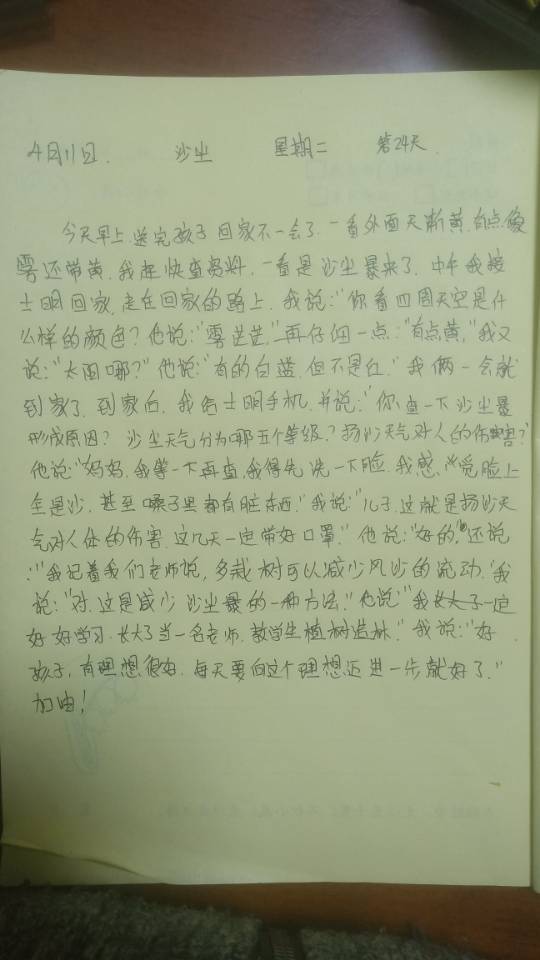 4月11日. 沙尘 星期二 第24天.
今天早上送完孩子回家不一会了.一看外面天渐黄.有点像
雾还带黄.我赶快查资料,一看是沙尘暴来了.中午我接
士明回家,走在回家的路上.我说:"你看四周天空是什
么样的颜色?他说:"雾茫茫,"再仔细一点:"有点黄,"我又
说:"太阳哪?"他说:"有的白蓝.但不是红."我俩一会就
到家了.到家后.我给士明手机.并说:"你查一下沙尘暴
形成原因?沙尘天气分为哪五个等级?扬沙天气对人的伤害?
他说:"妈妈.我等一下再查,我得先洗一下脸.我感觉脸上
全是沙.甚至嗓子里都有脏东西."我说:"儿子.这就是扬沙天
气对人体的伤害.这几天一定带好口罩."他说:"好的."还说
:"我记着我们老师说,多栽树可以减少风沙的流动."我
说:"对.这是减少沙尘暴的一种方法."他说"我长大了一定
好好学习.长大了当一名老师.教学生植树造林."我说:"好
孩子,有理想很好.每天要向这个理想迈进一步就好了."
加油!